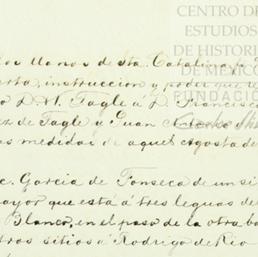 CENTRO DE
ESTUDIOS
DE HISTORI
DE MÉXICO
FUNDACIÓ
los llanos de Sta. Catalina
instruccion y poder que
D. N. Tagle á D. Francisco
de Tagle y Juan
as medidas de aquel Agostade
c. Garcia de Fonseca de un si
ayor que está á tres leguas de
Blanco, en el paso de la otra ba
tros sitios á Rodrigo de Rio